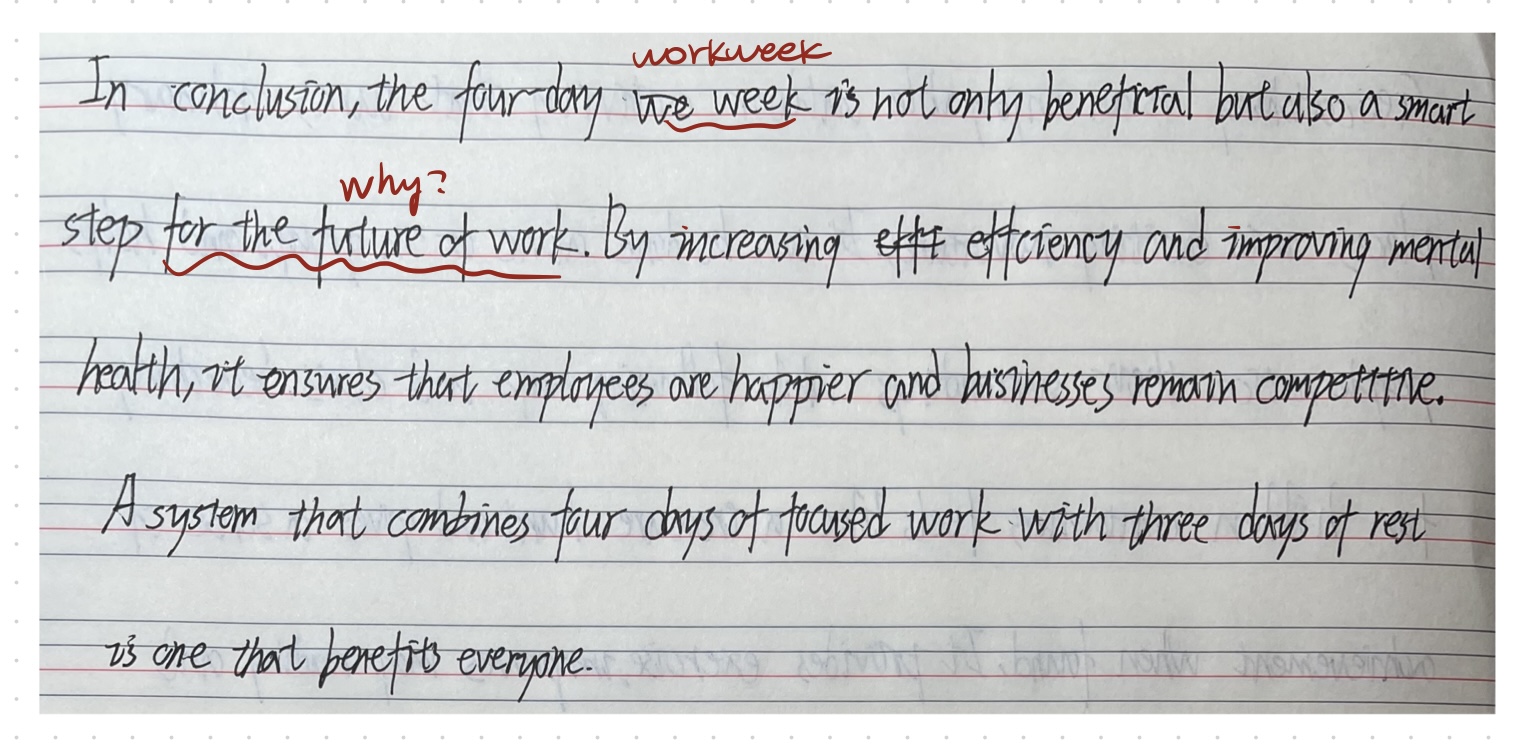 workweek
In conclusion, the four-day we week is not only beneficial but also a smart
why?
step for the future of work. By increasing effi effciency and improving mental
health, it ensures that employees are happier and businesses remain competitive.
A system that combines four days of focused work with three days of rest
is one that benefits everyone.